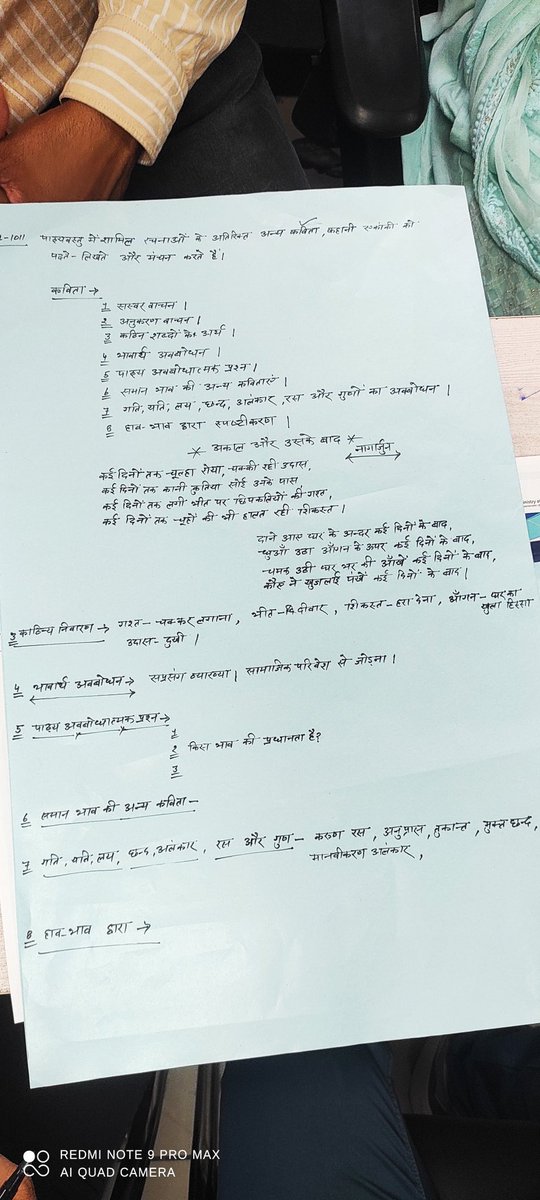 1011 पाठ्यवस्तु में शामिल रचनाओं के अतिरिक्त अन्य कविता, कहानी एकांकी को
पढ़ते-लिखते और मंचन करते हैं।
कविता →
1 सस्वर वाचन।
2 अनुकरण वाचन।
3 कठिन शब्दों के अर्थ।
4 भावार्थ अवबोधन।
5 पाठ्य अवबोधात्मक प्रश्न।
6 समान भाव की अन्य कविताएं।
7 गति, यति, लय, छन्द, अलंकार, रस और गुणों का अवबोधन।
8 हाव-भाव द्वारा स्पष्टीकरण।
* अकाल और उसके बाद *
नागार्जुन
कई दिनों तक चूल्हा रोया, चक्की रही उदास,
कई दिनों तक कानी कुतिया सोई उनके पास
कई दिनों तक लगी भीत पर छिपकलियों की गश्त,
कई दिनों तक चूहों की भी हालत रही शिकस्त।
दाने आए घर के अन्दर कई दिनों के बाद,
धुआँ उठा आँगन के ऊपर कई दिनों के बाद,
चमक उठी घर भर की आँखें कई दिनों के बाद,
कौए ने खुजलाई पांखें कई दिनों के बाद।
3 काठिन्य निवारण → गश्त- चक्कर लगाना, भीत- दीवार, शिकस्त- हरा देना, आँगन- घर का
खुला हिस्सा
उदास- दुखी।
4 भावार्थ अवबोधन → सप्रसंग व्याख्या। सामाजिक परिवेश से जोड़ना।
5 पाठ्य अवबोधात्मक प्रश्न →
1
2 किस भाव की प्रधानता है?
3
6 समान भाव की अन्य कविता -
7 गति, यति, लय, छन्द, अलंकार, रस और गुण - करुण रस, अनुप्रास, तुकान्त, मुक्त छन्द,
मानवीकरण अलंकार,
8 हाव-भाव द्वारा →
REDMI NOTE 9 PRO MAX
AI QUAD CAMERA